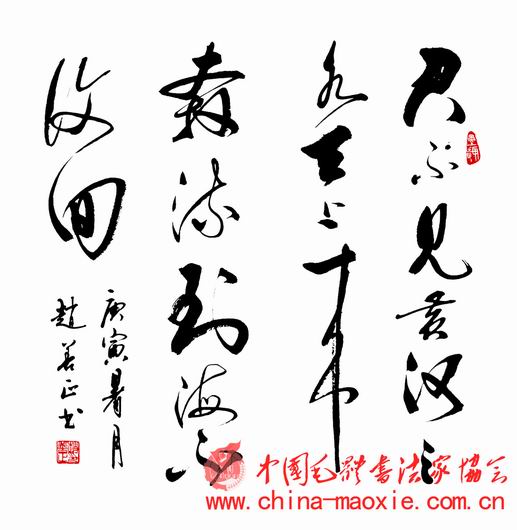 君不見黄河之
水天上来
奔流到海不
復回
庚寅暑月
趙善正书
中國毛體書法家協会
www.china-maoxie.com.cn